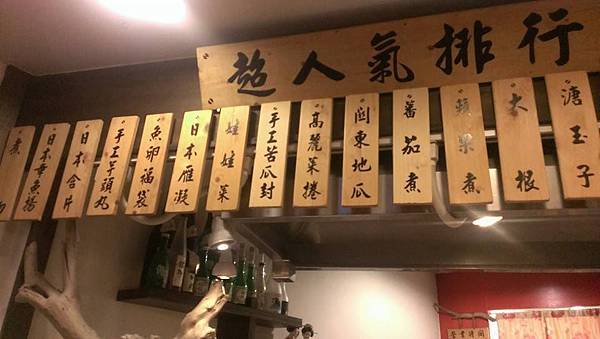 超人氣排行
溏玉子
大根
蘋果煮
蕃茄煮
關東地瓜
高麗菜捲
手工苦瓜封
娃娃菜
日本雁凝
魚卵福袋
手工芋頭丸
日本合片
日本章魚揚